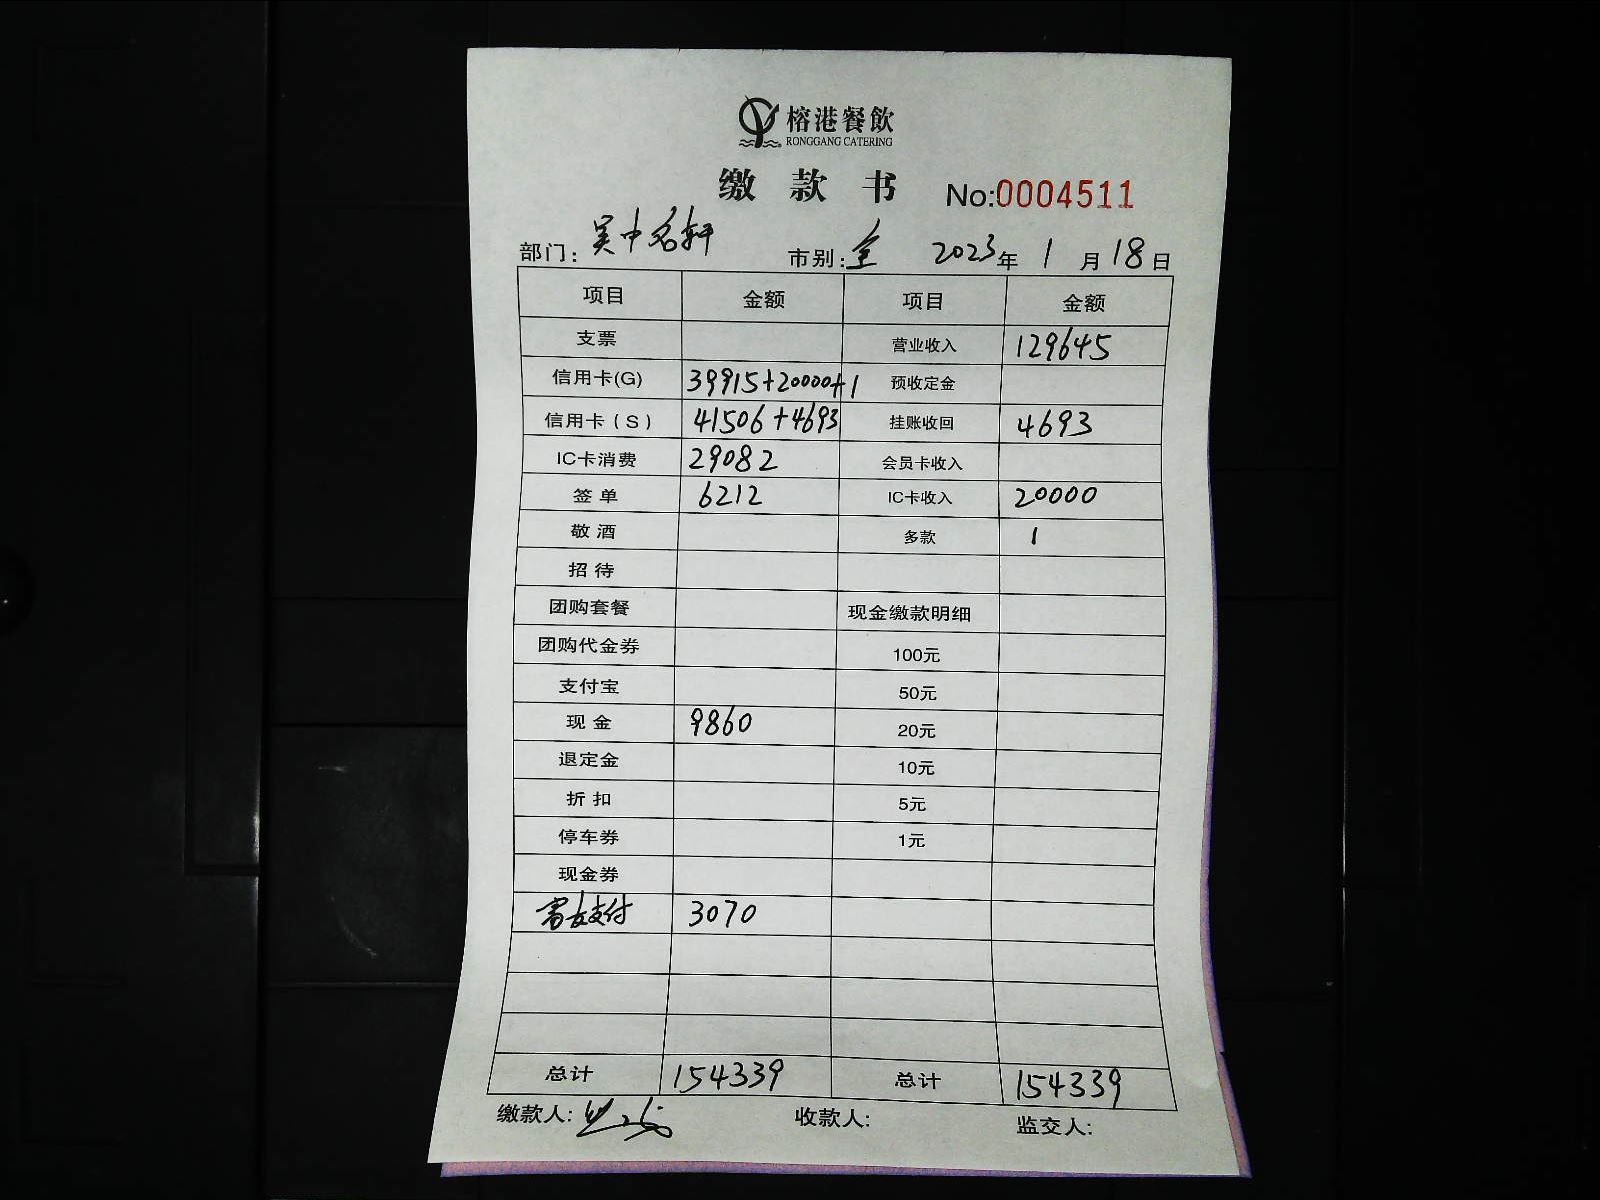 榕港餐飲
RONGGANG CATERING
缴款书 No:0004511
部门: 吴中名轩 市别: 全 2023年1月18日
项目 金额 项目 金额
支票 营业收入 129645
信用卡(G) 39915+20000+1 预收定金
信用卡(S) 41506+4693 挂账收回 4693
IC卡消费 29082 会员卡收入
签单 6212 IC卡收入 20000
敬酒 多款 1
招待
团购套餐 现金缴款明细
团购代金券 100元
支付宝 50元
现金 9860 20元
退定金 10元
折扣 5元
停车券 1元
现金券
支付 3070
总计 154339 总计 154339
缴款人: 收款人: 监交人: